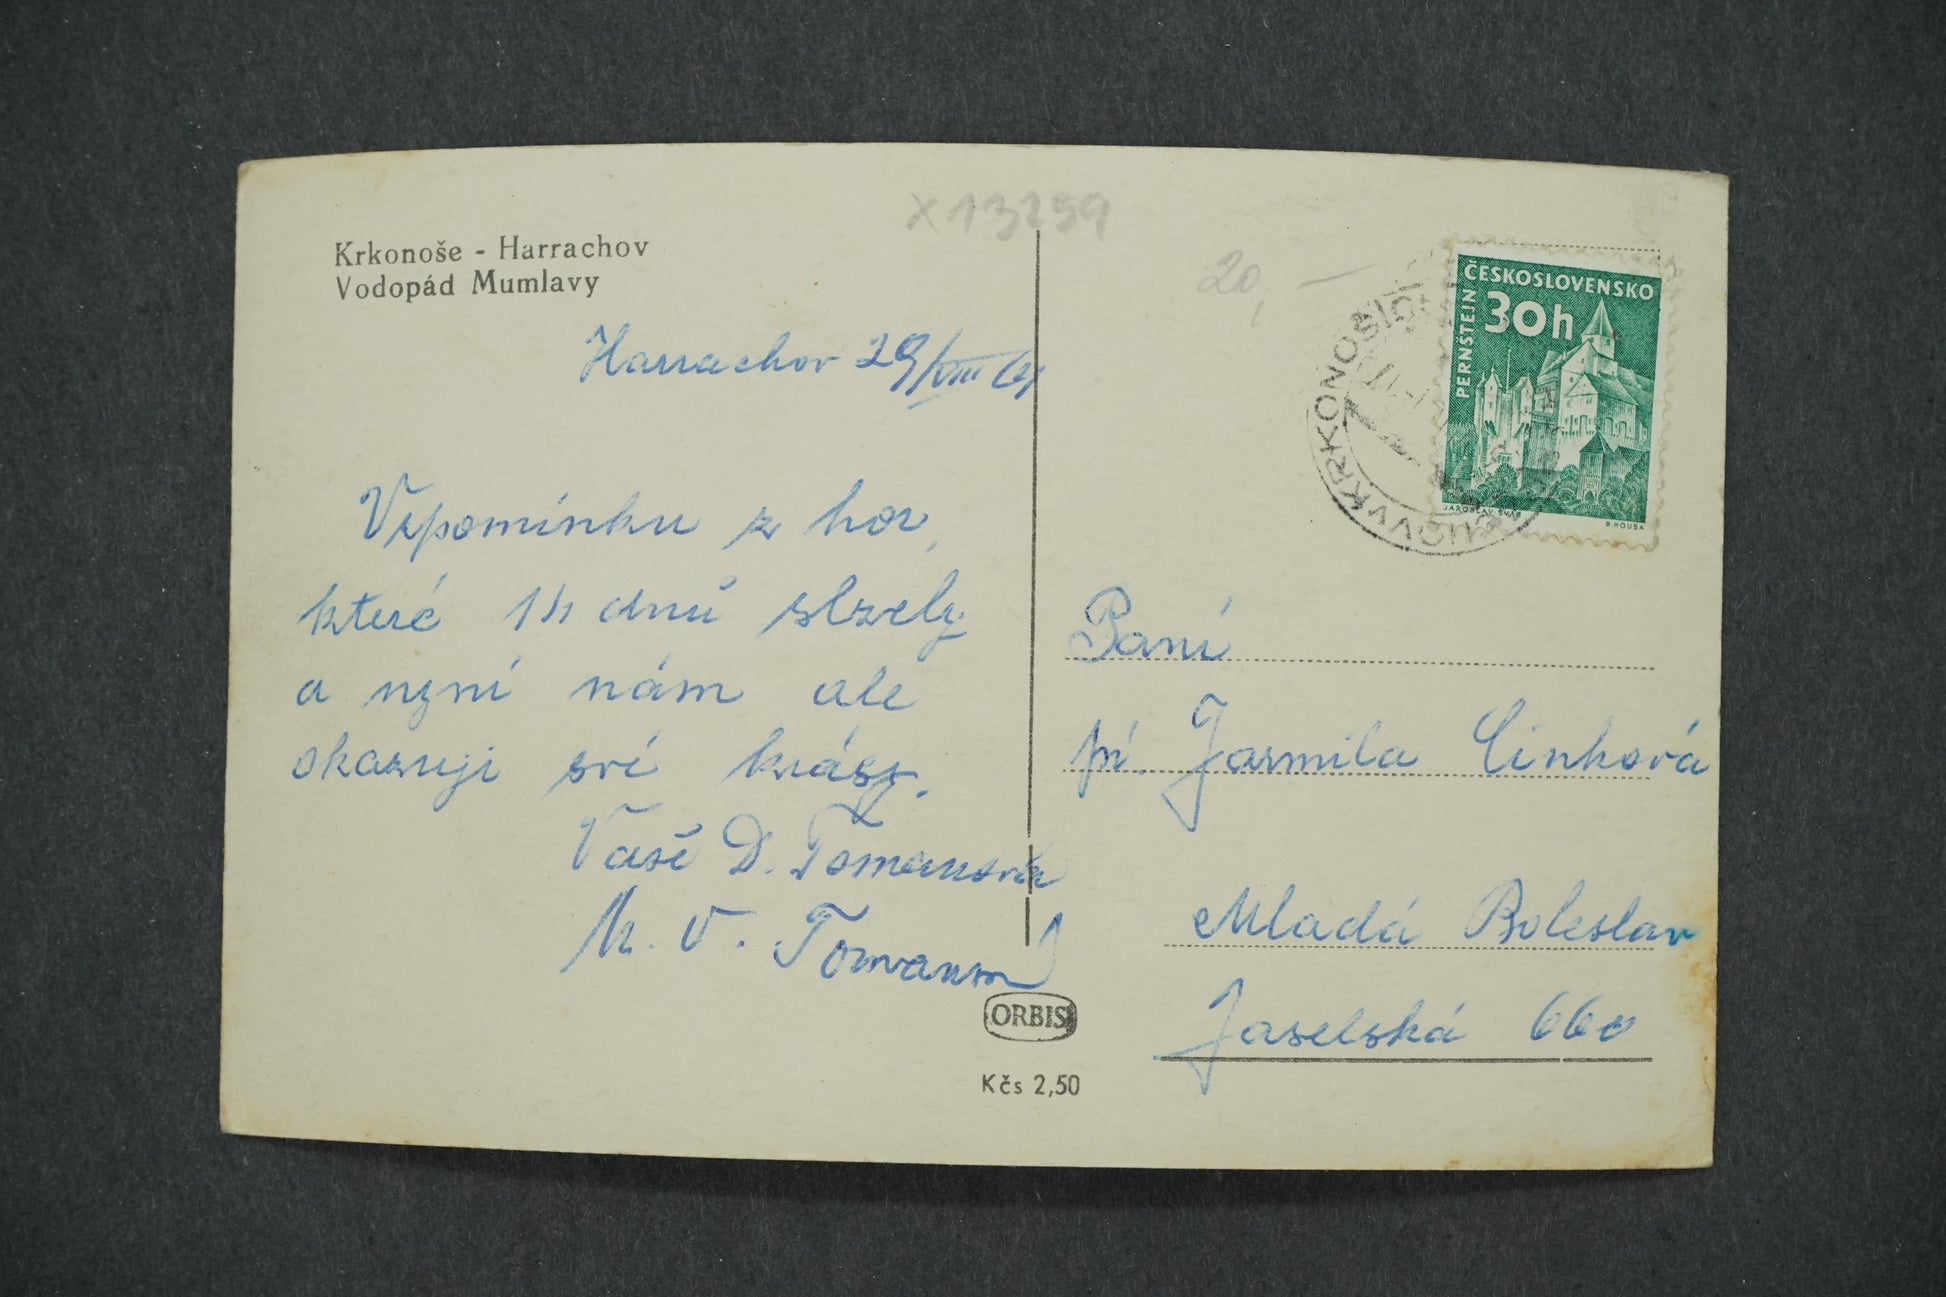 X13259
20,-
Krkonoše - Harrachov
Vodopád Mumlavy
Harrachov 29/VIII 61
Vzpomínku z hor,
které 14 dnů slzely
a nyní nám ale
okazují své krásy.
Vaše D. Tomanová
V. Toman
ORBIS
Kčs 2,50
ČESKOSLOVENSKO
30h
PERNŠTEJN
JAROSLAV ŠVÁB
B. HOUSA
HARRACHOV V KRKONOŠÍCH
Paní
pí. Jarmila Cinková
Mladá Boleslav
Jaselská 660